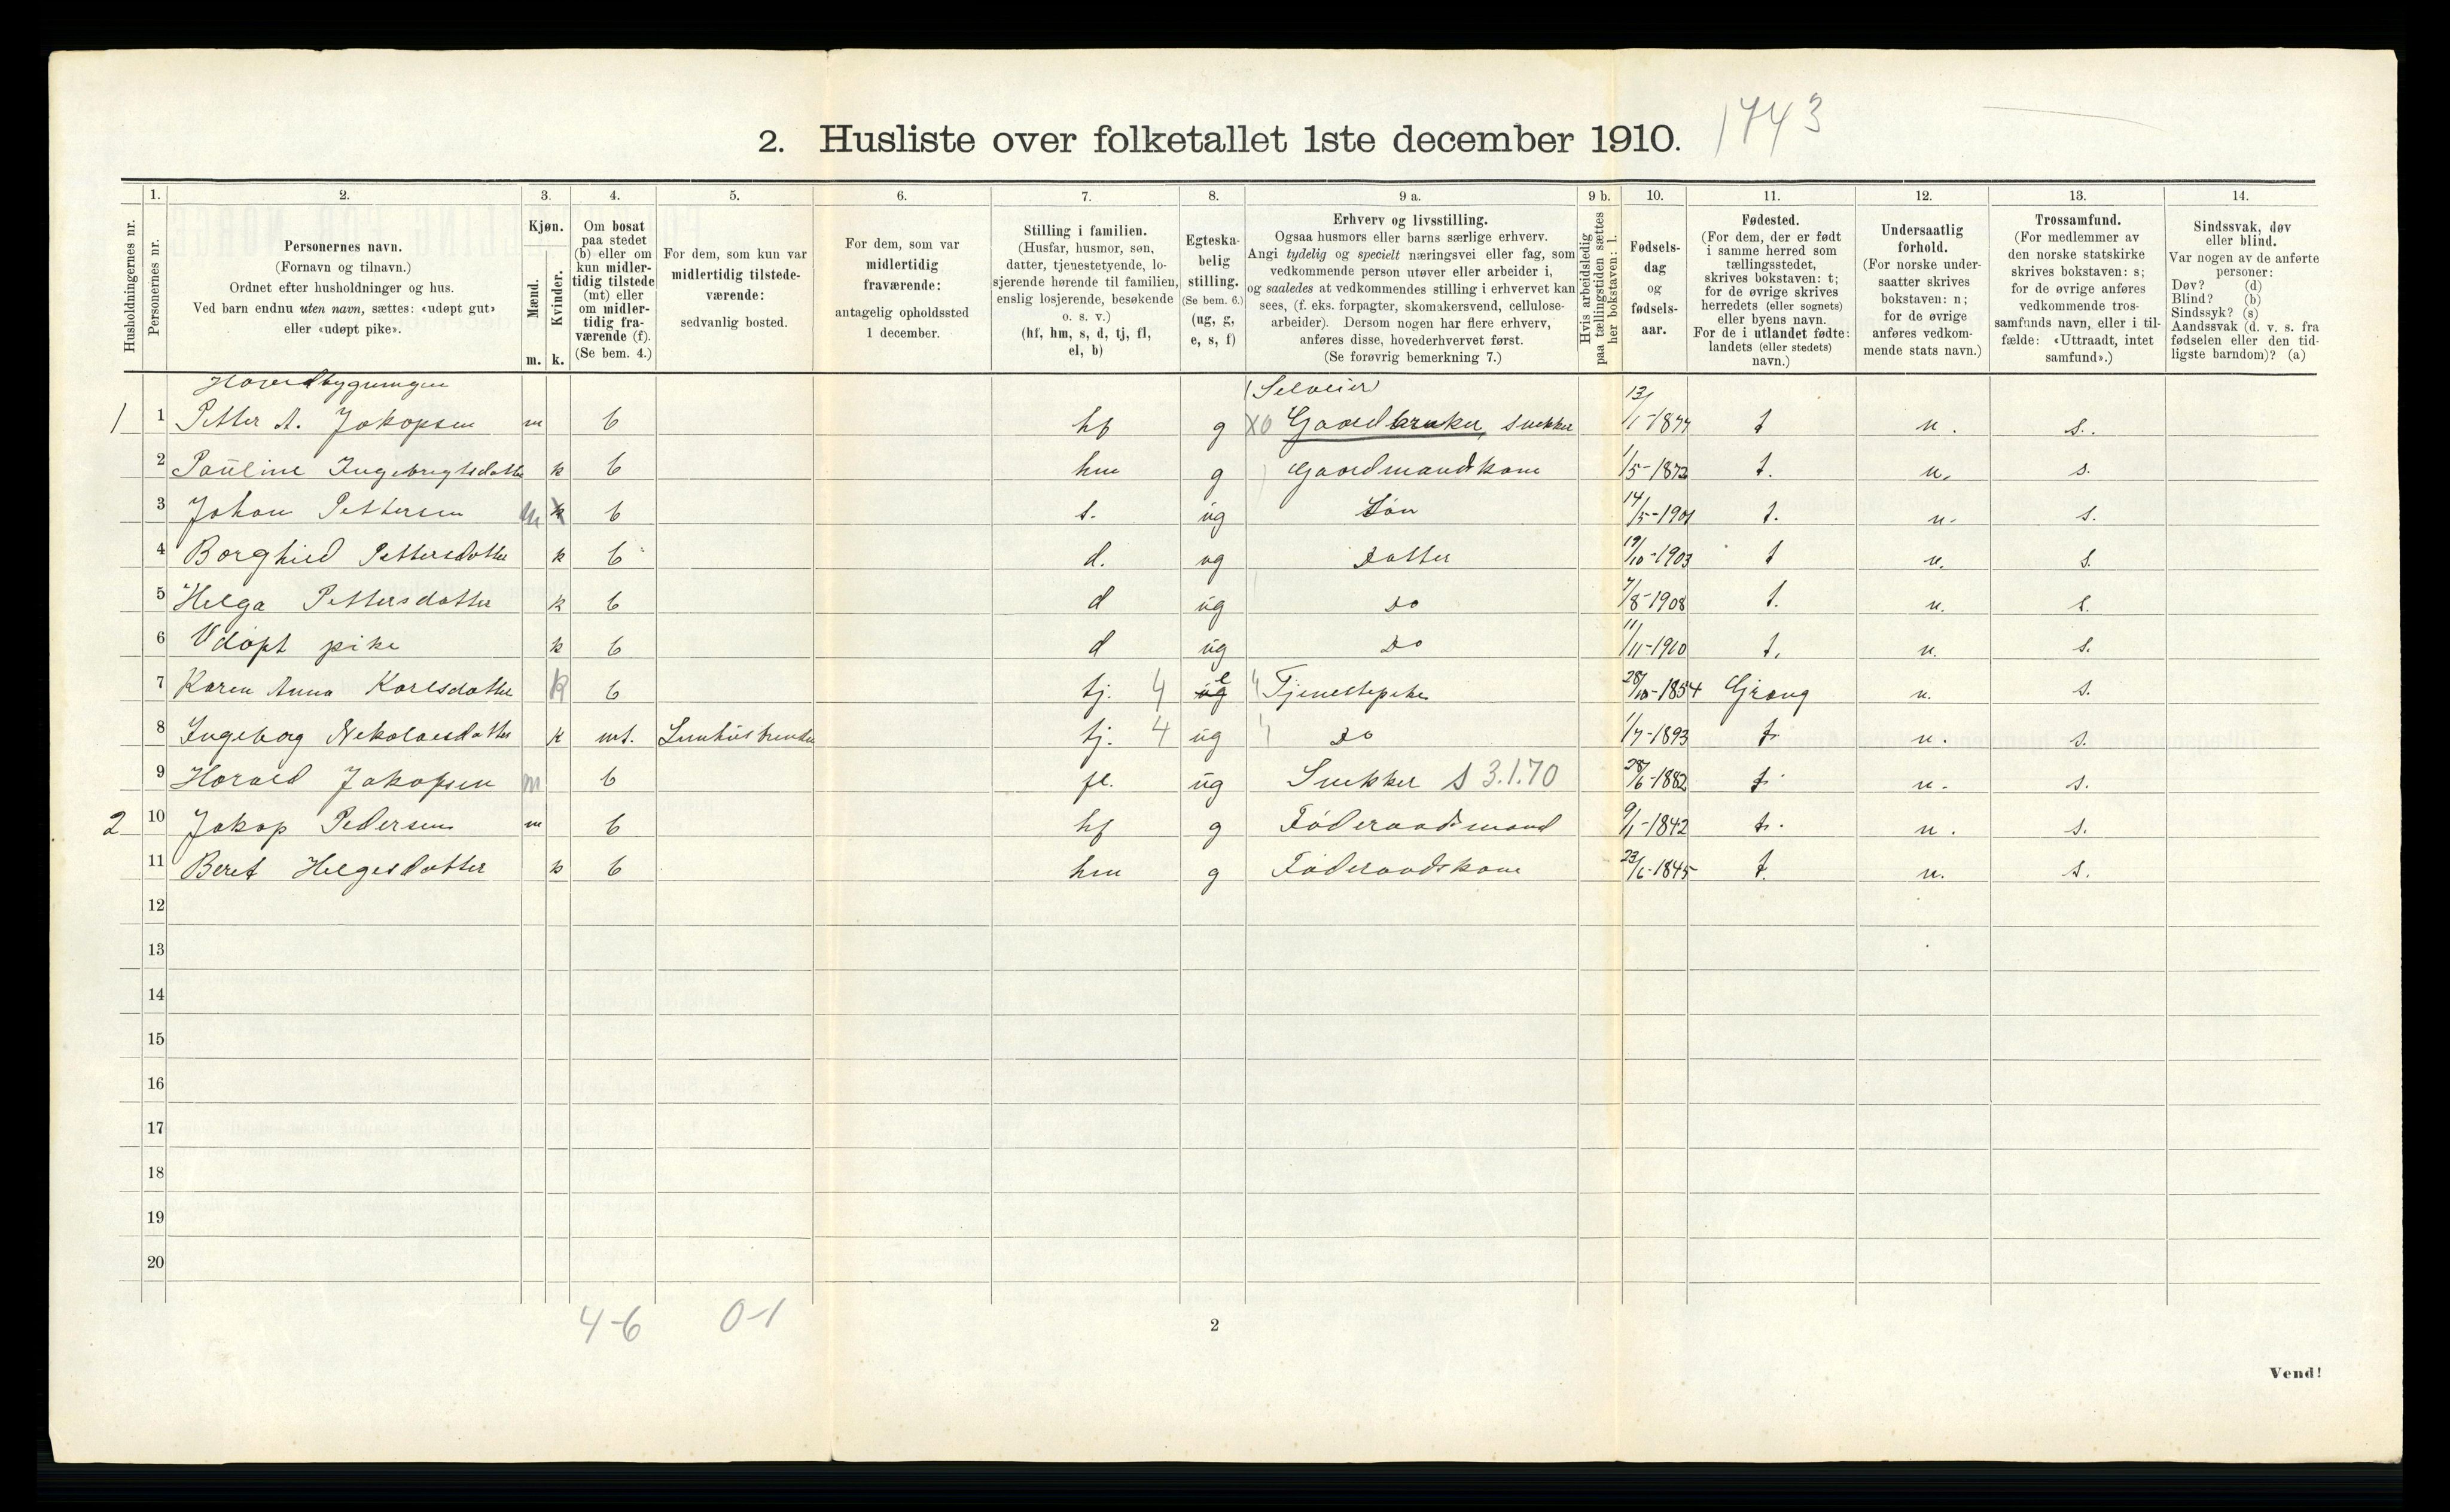 2. Husliste over folketallet 1ste december 1910. 1743
1. 2. 3. 4. 5. 6. 7. 8. 9 a. 9 b. 10. 11. 12. 13. 14.
Husholdningernes nr.
Personernes nr.
Personernes navn.
(Fornavn og tilnavn.)
Ordnet efter husholdninger og hus.
Ved barn endnu uten navn, sættes: «udøpt gut»
eller «udøpt pike».
Kjøn.
Mænd.
Kvinder.
m. k.
Om bosat
paa stedet
(b) eller om
kun midler-
tidig tilstede
(mt) eller
om midler-
tidig fra-
værende (f).
(Se bem. 4.)
For dem, som kun var
midlertidig tilstede-
værende:
sedvanlig bosted.
For dem, som var
midlertidig
fraværende:
antagelig opholdssted
1 december.
Stilling i familien.
(Husfar, husmor, søn,
datter, tjenestetyende, lo-
sjerende hørende til familien,
enslig losjerende, besøkende
o. s. v.)
(hf, hm, s, d, tj, fl,
el, b)
Egteska-
belig
stilling.
(Se bem. 6.)
(ug, g,
e, s, f)
Erhverv og livsstilling.
Ogsaa husmors eller barns særlige erhverv.
Angi tydelig og specielt næringsvei eller fag, som
vedkommende person utøver eller arbeider i,
og saaledes at vedkommendes stilling i erhvervet kan
sees, (f. eks. forpagter, skomakersvend, cellulose-
arbeider). Dersom nogen har flere erhverv,
anføres disse, hovederhvervet først.
(Se forøvrig bemerkning 7.)
Hvis arbeidsledig
paa tællingstiden sættes
her bokstaven: l.
Fødsels-
dag
og
fødsels-
aar.
Fødested.
(For dem, der er født
i samme herred som
tællingsstedet,
skrives bokstaven: t;
for de øvrige skrives
herredets (eller sognets)
eller byens navn.
For de i utlandet fødte:
landets (eller stedets)
navn.)
Undersaatlig
forhold.
(For norske under-
saatter skrives
bokstaven: n;
for de øvrige
anføres vedkom-
mende stats navn.)
Trossamfund.
(For medlemmer av
den norske statskirke
skrives bokstaven: s;
for de øvrige anføres
vedkommende tros-
samfunds navn, eller i til-
fælde: «Uttraadt, intet
samfund».)
Sindssvak, døv
eller blind.
Var nogen av de anførte
personer:
Døv? (d)
Blind? (b)
Sindssyk? (s)
Aandssvak (d. v. s. fra
fødselen eller den tid-
ligste barndom)? (a)
Hovedbygningen (Selveier)
1 1 Petter A. Jakopsen m b hf g X0 Gaardbruker, snekker 13/1-1877 t n. s.
2 Pauline Ingebregtsdatter k b hm g Gaardmandskone 1/5-1872 t. n. s.
3 Johan Pettersen m k b s. ug Søn 14/5-1901 t. n. s.
4 Borghild Pettersdatter k b d. ug Datter 19/10-1903 t n. s.
5 Helga Pettersdatter k b d ug Do 7/8-1908 t. n. s.
6 Udøpt pike k b d ug Do 11/11-1910 t. n. s.
7 Karen Anna Karlsdatter k b tj. 4 ug e Tjenestepike 28/10-1854 Grong n. s.
8 Ingeborg Nekolaisdatter k mt. tj. 4 ug Do 1/7-1893 t. n. s.
9 Harald Jakopsen m b fl. ug Snekker S 3.1.70 28/6-1882 t. n. s.
2 10 Jakop Pedersen m b hf g Føderaadsmand 9/1-1842 t. n. s.
11 Beret Helgesdatter k b hm g Føderaadskone 23/6-1845 t. n. s.
12
13
14
15
16
17
18
19
20
4-6 0-1
2
Vend!